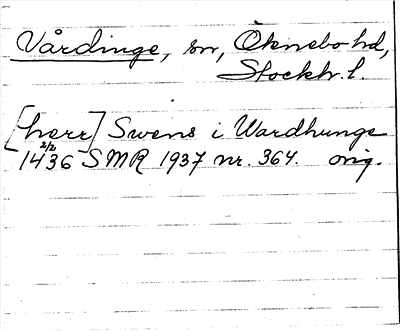 Vårdinge, sn, Öknebo hd,
Stockh. l.
[herr] Swens i Wardhunge
1436 2/2 SMR 1937 nr. 364. orig.